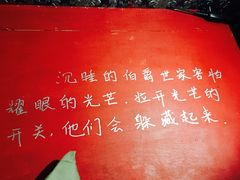 沉睡的伯爵世家害怕
耀眼的光芒.拉开光芒的
开关,他们会躲藏起来.